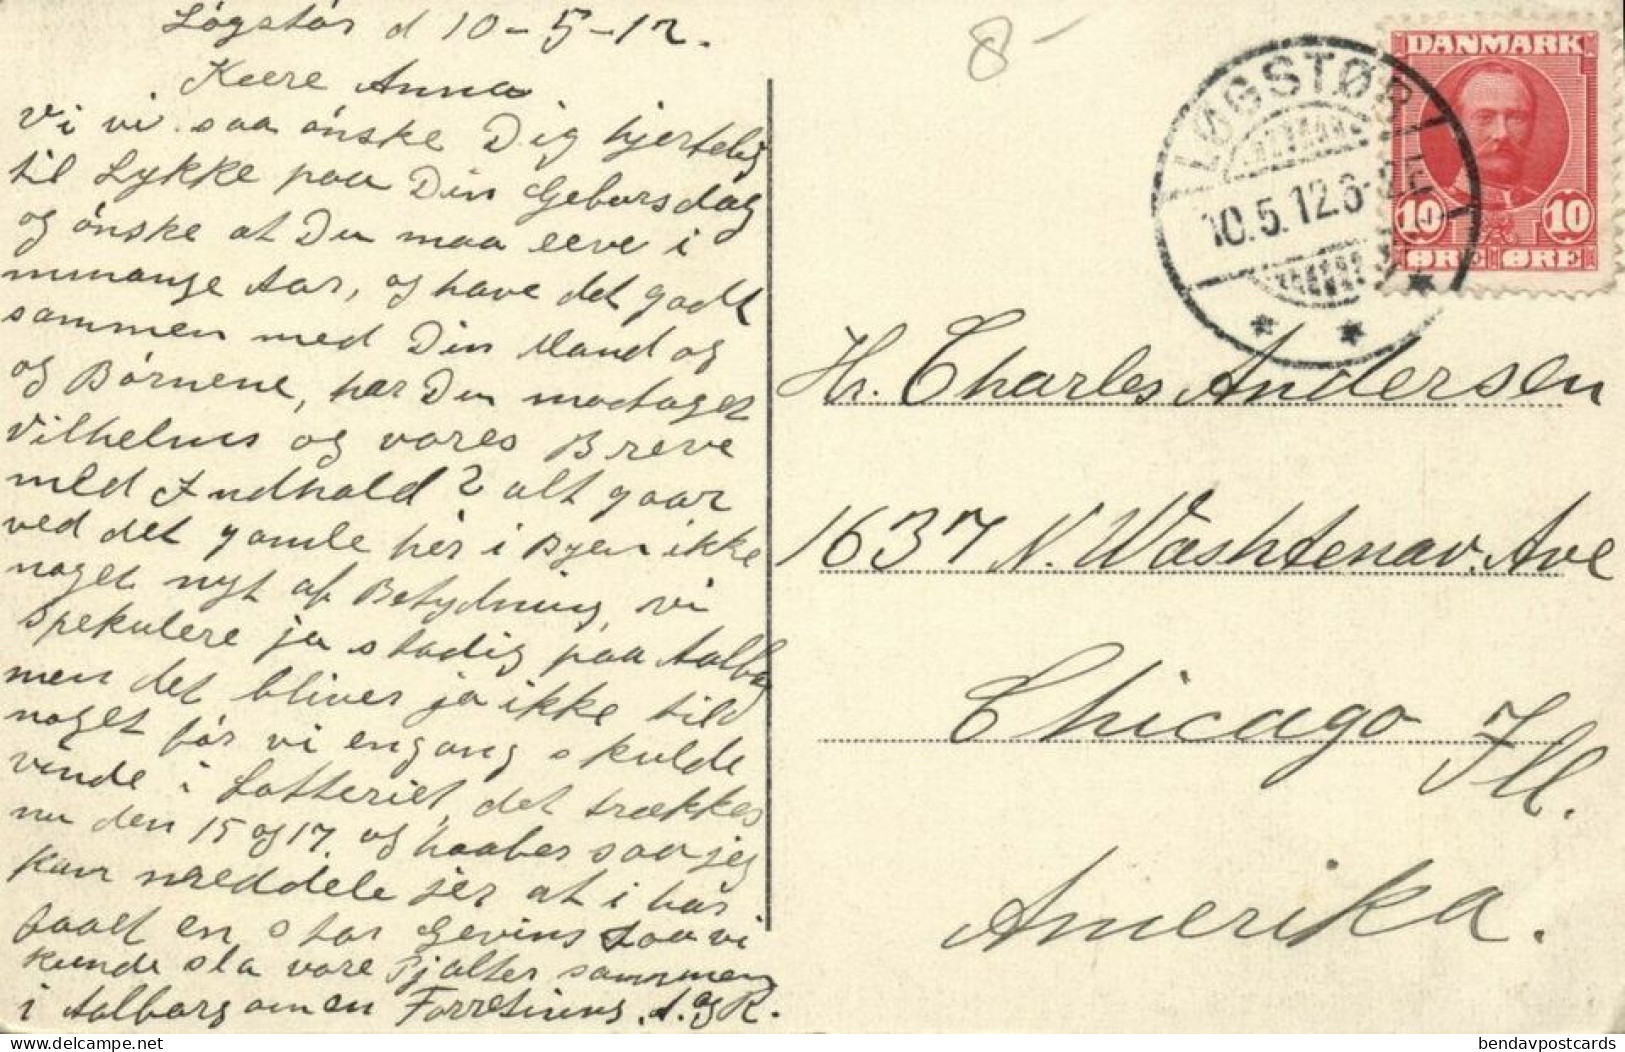 Løgstør d 10-5-12.
Kære Anna
Vi vi saa ønske Dig hjertelig
til Lykke paa Din Geborsdag
og ønske at Du maa leve i
mmange Aar, og have det godt
sammen med Din Mand og
og Børnene, har Du modtaget
Vilhelms og vores Breve
med Indhold? alt gaar
ved det gamle her i Byen ikke
noget nyt af Betydning, vi
spekulere jo stadig paa Aalborg
men det bliver jo ikke til
noget før vi engang skulde
vinde i Lotteriet, det trækkes
nu den 15 og 17, og haaber saa jeg
kan meddele jer at i har
faaet en stor Gevinst saa vi
kunde sla vore Pjalter sammen
i Aalborg om en Forretning. A. og R.
8-
DANMARK
10 10
ØRE ØRE
LØGSTØR
10.5.12.6-
Hr. Charles Andersen
1637 N. Washtenav. Ave
Chicago Ill.
Amerika.
Visit our webstore at https://bendavpostcards.delcampe.net
bendavpostcards